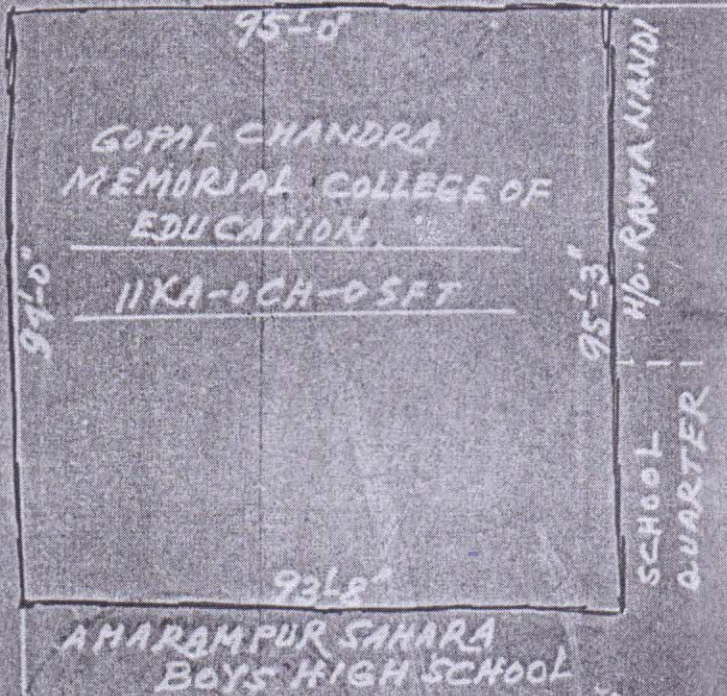 95'-0"
GOPAL CHANDRA
MEMORIAL COLLEGE OF
EDUCATION
11KA-0CH-0SFT
94'-0"
95'-3"
H/O. RAMA NANDI
SCHOOL
QUARTER
93'-8"
AMARAMPUR SAHARA
BOYS HIGH SCHOOL